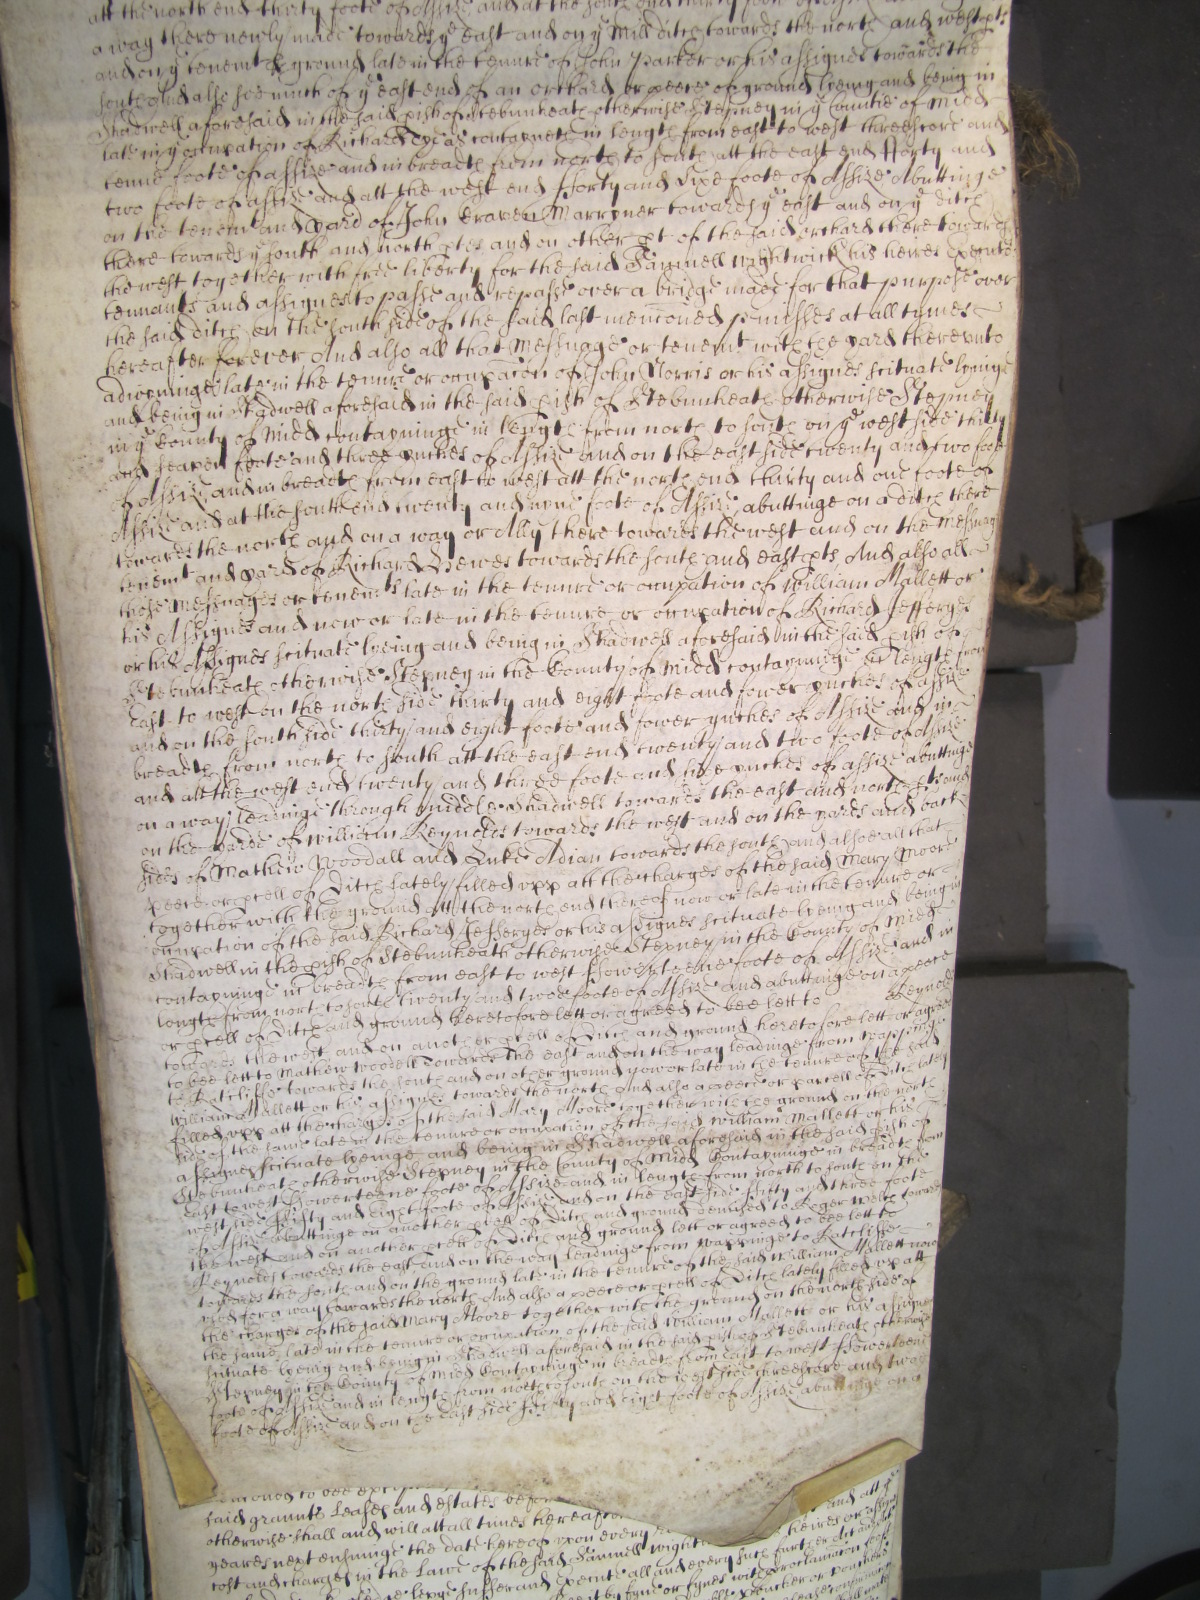 att the north end thirty foote of Assize and at the south end thirty foote of Assize
a way there newly made towards ye east and on ye Mill ditch towards the north and west pts
and on ye tenemt & ground late in the tenure of John Parker or his assignes towards the
south And also soe much of ye east end of an orchard or peece of ground lyeing and being in
Shadwell aforesaid in the said pish of Stebunheath otherwise Stepney in ye Countie of Midd
late in ye occupation of Richard contayneth in length from east to west threescore and
tenne foote of assize and in breadth from north to south att the east end fforty and
two foote of assize and att the west end fforty and sixe foote of Assize Abuttinge
on the tenemt and yard of John Craven Marryner towards ye east and on ye ditch
there towards ye south and north ptes and on other pt of the said orchard there towards
the west together with free liberty for the said Samuell Wightwick his heires Executrs
tennants and assignes to passe and repasse over a bridge made for that purpose over
the said ditch on the south side of the said last mentioned pmisses at all tymes
hereafter for ever And also all that Messuage or tenemt with the yard thereunto
adioyninge late in the tenure or occupacon of John Norris or his assignes scituate lyenge
and being in Shadwell aforesaid in the said pish of Stebunheath otherwise Stepney
in ye County of Midd contayninge in length from north to south on ye west side thirty
and seaven foote and three ynches of Assize and on the east side twenty and two foote
of Assize and in breadth from east to west att the north end thirty and one foote of
Assize and at the south end twenty and nyne foote of Assize abuttinge on a ditch there
towards the north and on a way or Ally there towards the west and on the Messuage
tenemt and yard of Richard Hewes towards the south and east pts And also all
those Messuages or tenemts late in the tenure or occupation of William Mallett or
his Assignes and now or late in the tenure or occupation of Richard Jefferyes
or his Assignes scituate lyeing and being in Shadwell aforesaid in the said pish of
Stebunheath otherwise Stepney in the County of Midd contayninge in length from
East to west on the north side thirty and eight foote and fower ynches of assize
and on the south side thirty and eight foote and fower ynches of Assize and in
breadth from north to south att the east end twenty and two foote of Assize
and att the west end twenty and three foote and sixe ynches of assize abuttinge
on a way leadinge through middle Shadwell towards the east and north pts and
on the yards of William Reynolds towards the west and on the yards and back
sides of Mathew Woodall and Luke Adian towards the south and alsoe all that
peece or pcell of Ditch lately filled upp att the charges of the said Mary Moore
together with the ground att the north end thereof now or late in the tenure or
occupation of the said Richard Jefferyes or his assignes scituate lyeing and being in
Shadwell in the pish of Stebunheath otherwise Stepney in the County of Midd
contayninge in breadth from east to west ffowerteene foote of Assize and in
length from north to south twenty and twoe foote of Assize and abuttinge on a peece
or pcell of Ditch and ground heretofore lett or agreed to bee lett to Reynolds
towards the west and on another pcell of Ditch and ground heretofore lett or agreed
to bee lett to Mathew Woodell towards the east and on the way leadinge from Wappinge
to Ratcliffe towards the south and on other ground now or late in the tenure of the said
William Mallett or his assignes towards the north And also a peece or parcell of Ditch lately
filled upp att the charges of the said Mary Moore together with the ground on the north
side of the same late in the tenure or occupation of the said William Mallett or his
assignes scituate lyeinge and being in Shadwell aforesaid in the said pish of
Stebunheath otherwise Stepney in the County of Midd Contayninge in breadth from
East to west ffowerteene foote of Assize and in length from north to south on the
west side fifty and eight foote of Assize and on the east side fifty and three foote
of Assize abuttinge on another pcell of Ditch and ground demised to Roger Wells towards
the west and on another pcell of Ditch and ground lett or agreed to bee lett to
Reynolds towards the east and on the way leadinge from Wappinge to Ratcliffe
towards the south and on the ground late in the tenure of the said William Mallett now
used for a way towards the north And also a peece or pcell of Ditch lately filled up att
the charges of the said Mary Moore together with the ground on the north side of
the same late in the tenure or occupation of the said William Mallett or his assignes
scituate lyeing and being in Shadwell aforesaid in the said pish of Stebunheath otherwise
Stepney in the County of Midd Contayninge in breadth from East to west ffowerteene
foote of Assize and in length from north to south on the west side threescore and two
foote of Assize and on the East side fifty and eight foote of Assize abuttinge on a
to bee
said graunts Leases and estates before
otherwise shall and will att all tymes hereafter and att ye
yeares next ensuinge the date hereof upon every heires or assignes
cost and charges in the Lawe of the said Samuell Wight
suffer and execute all and every such further Act and
by fyne or fynes with proclamation